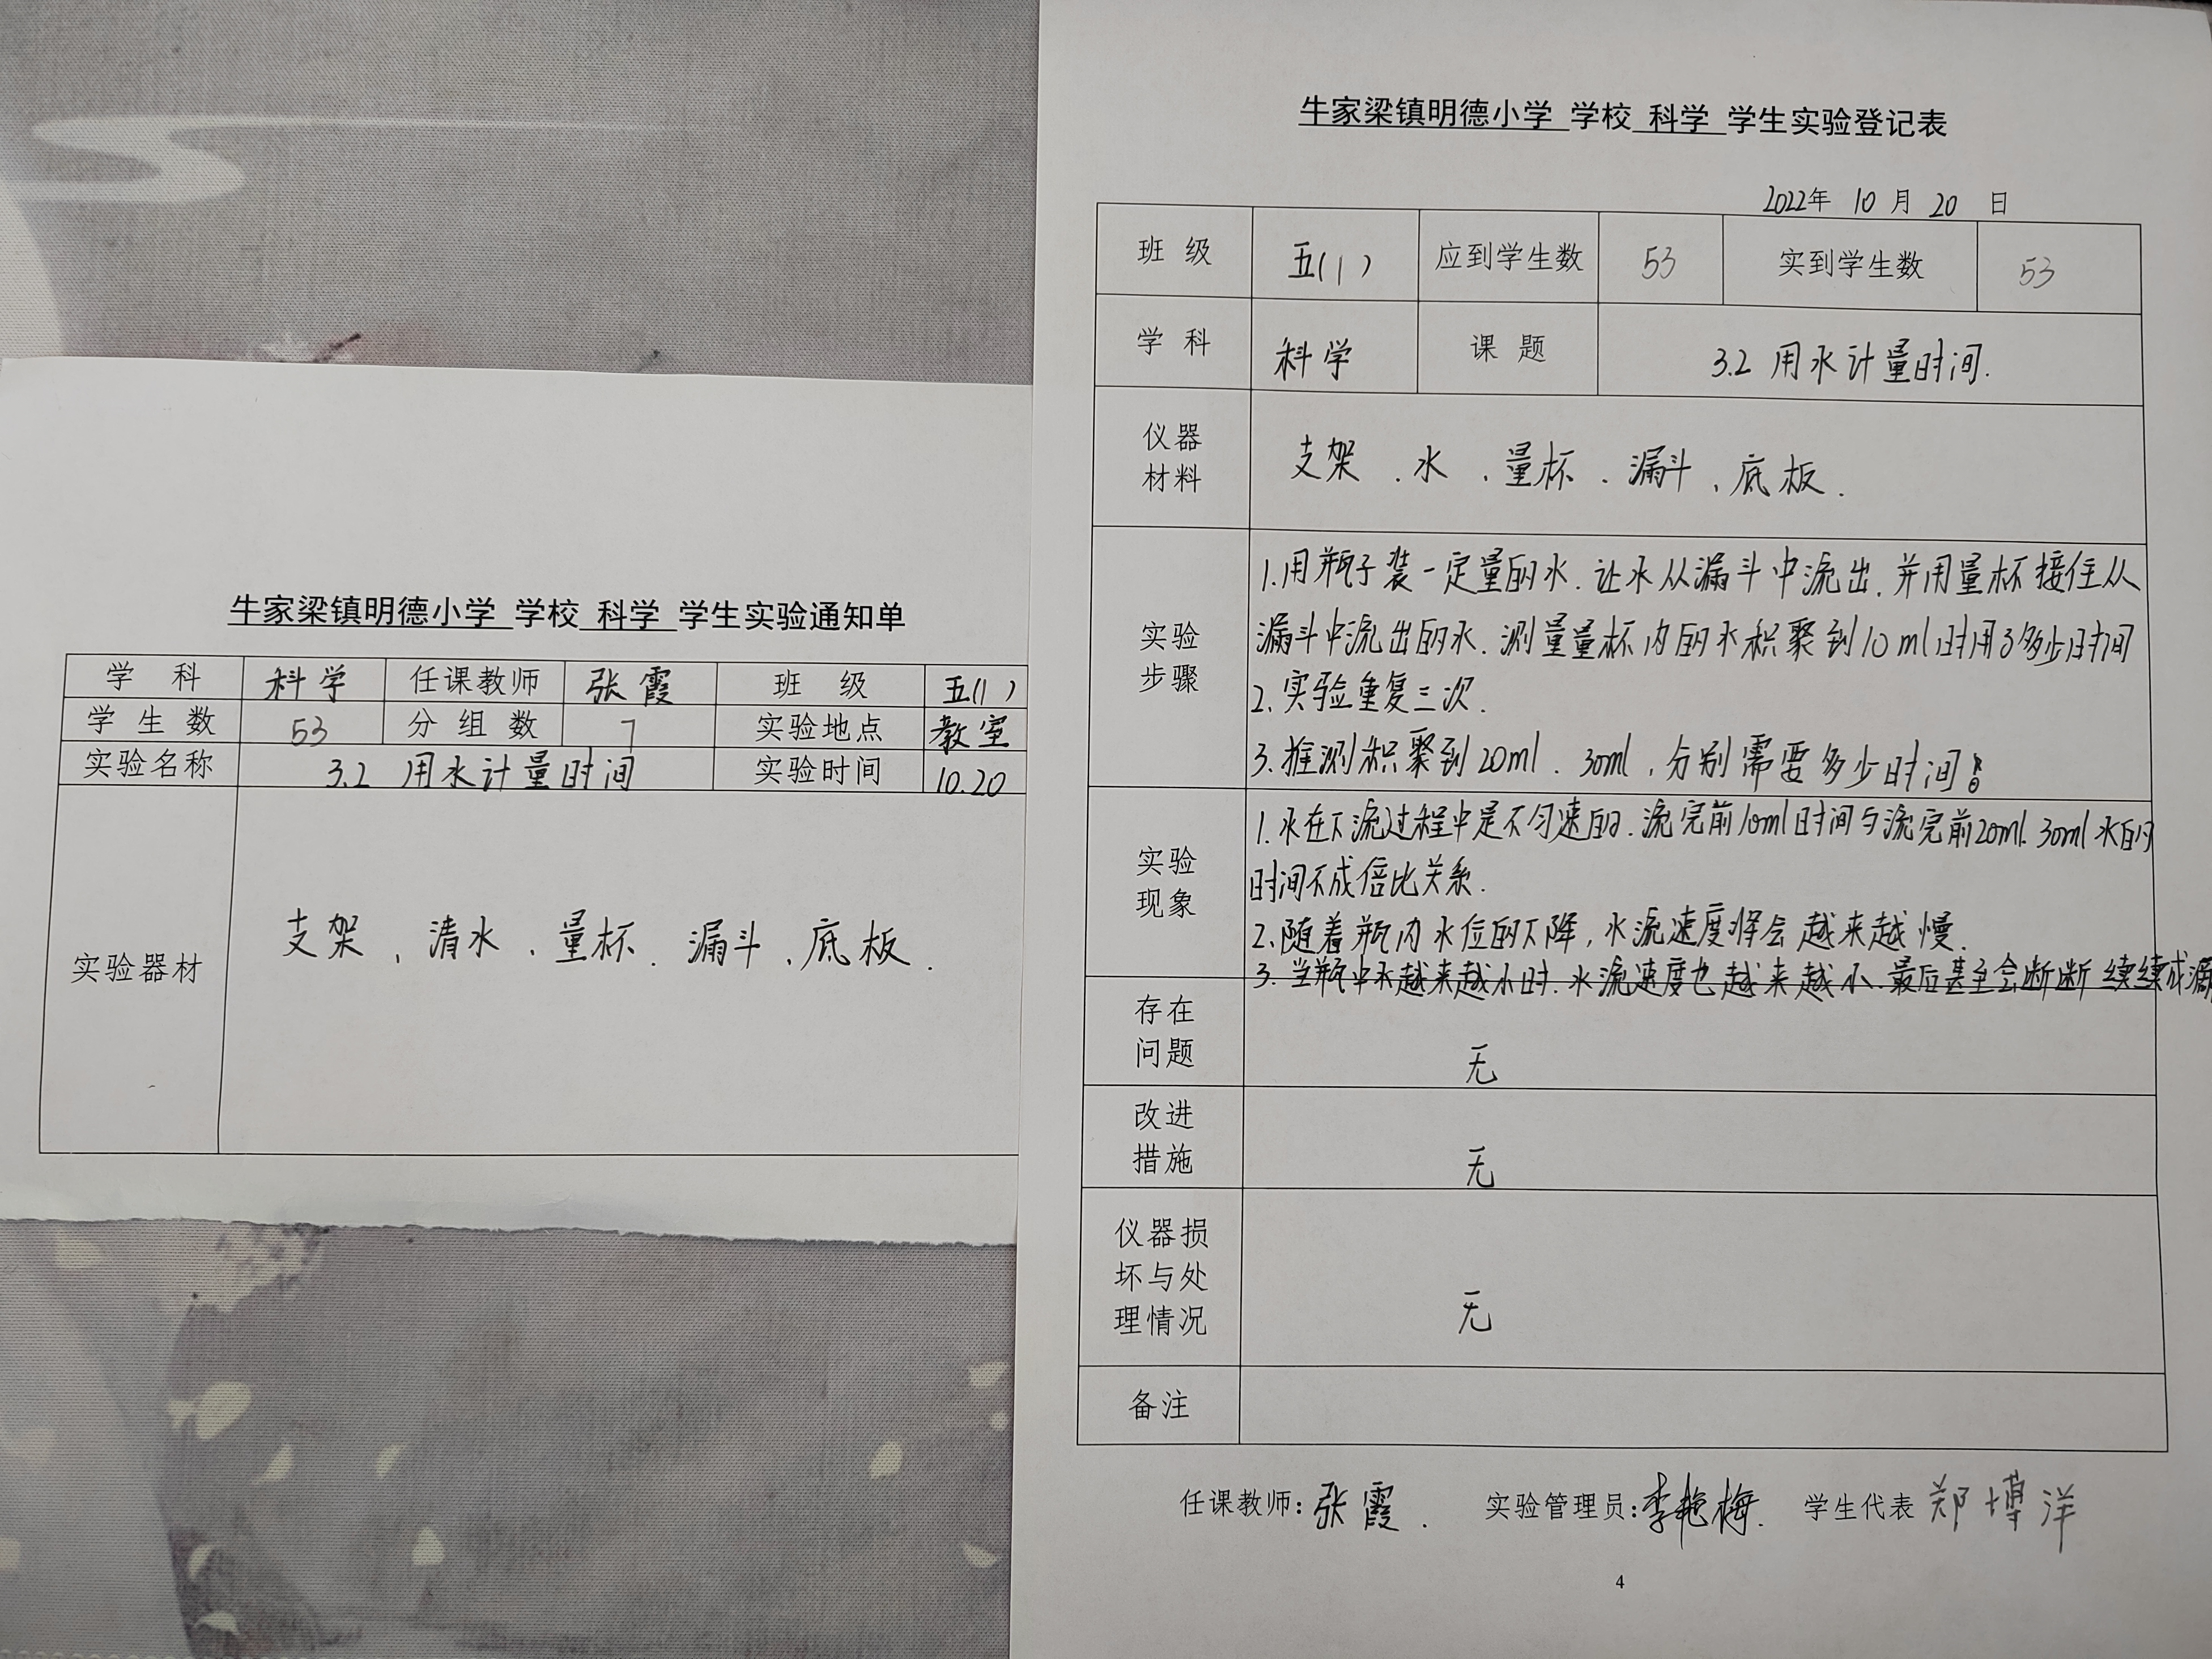 牛家梁镇明德小学 学校 科学 学生实验通知单
学科 科学 任课教师 张霞 班级 五(1)
学生数 53 分组数 7 实验地点 教室
实验名称 3.2 用水计量时间 实验时间 10.20
实验器材 支架、清水、量杯、漏斗、底板.
牛家梁镇明德小学 学校 科学 学生实验登记表
2022年 10 月 20 日
班级 五(1) 应到学生数 53 实到学生数 53
学科 科学 课题 3.2 用水计量时间.
仪器
材料
支架、水、量杯、漏斗、底板.
实验
步骤
1.用瓶子装一定量的水.让水从漏斗中流出.并用量杯接住从
漏斗中流出的水.测量量杯内的水积聚到10ml时用了多少时间
2.实验重复三次.
3.推测积聚到20ml、30ml,分别需要多少时间.
实验
现象
1.水在下流过程中是不匀速的.流完前10ml时间与流完前20ml.30ml水的
时间不成倍比关系.
2.随着瓶内水位的下降,水流速度将会越来越慢.
3.当瓶中水越来越小时.水流速度也越来越小.最后甚至会断断续续成滴
存在
问题
无
改进
措施
无
仪器损
坏与处
理情况
无
备注
任课教师:张霞. 实验管理员:李艳梅. 学生代表 郑博洋
4